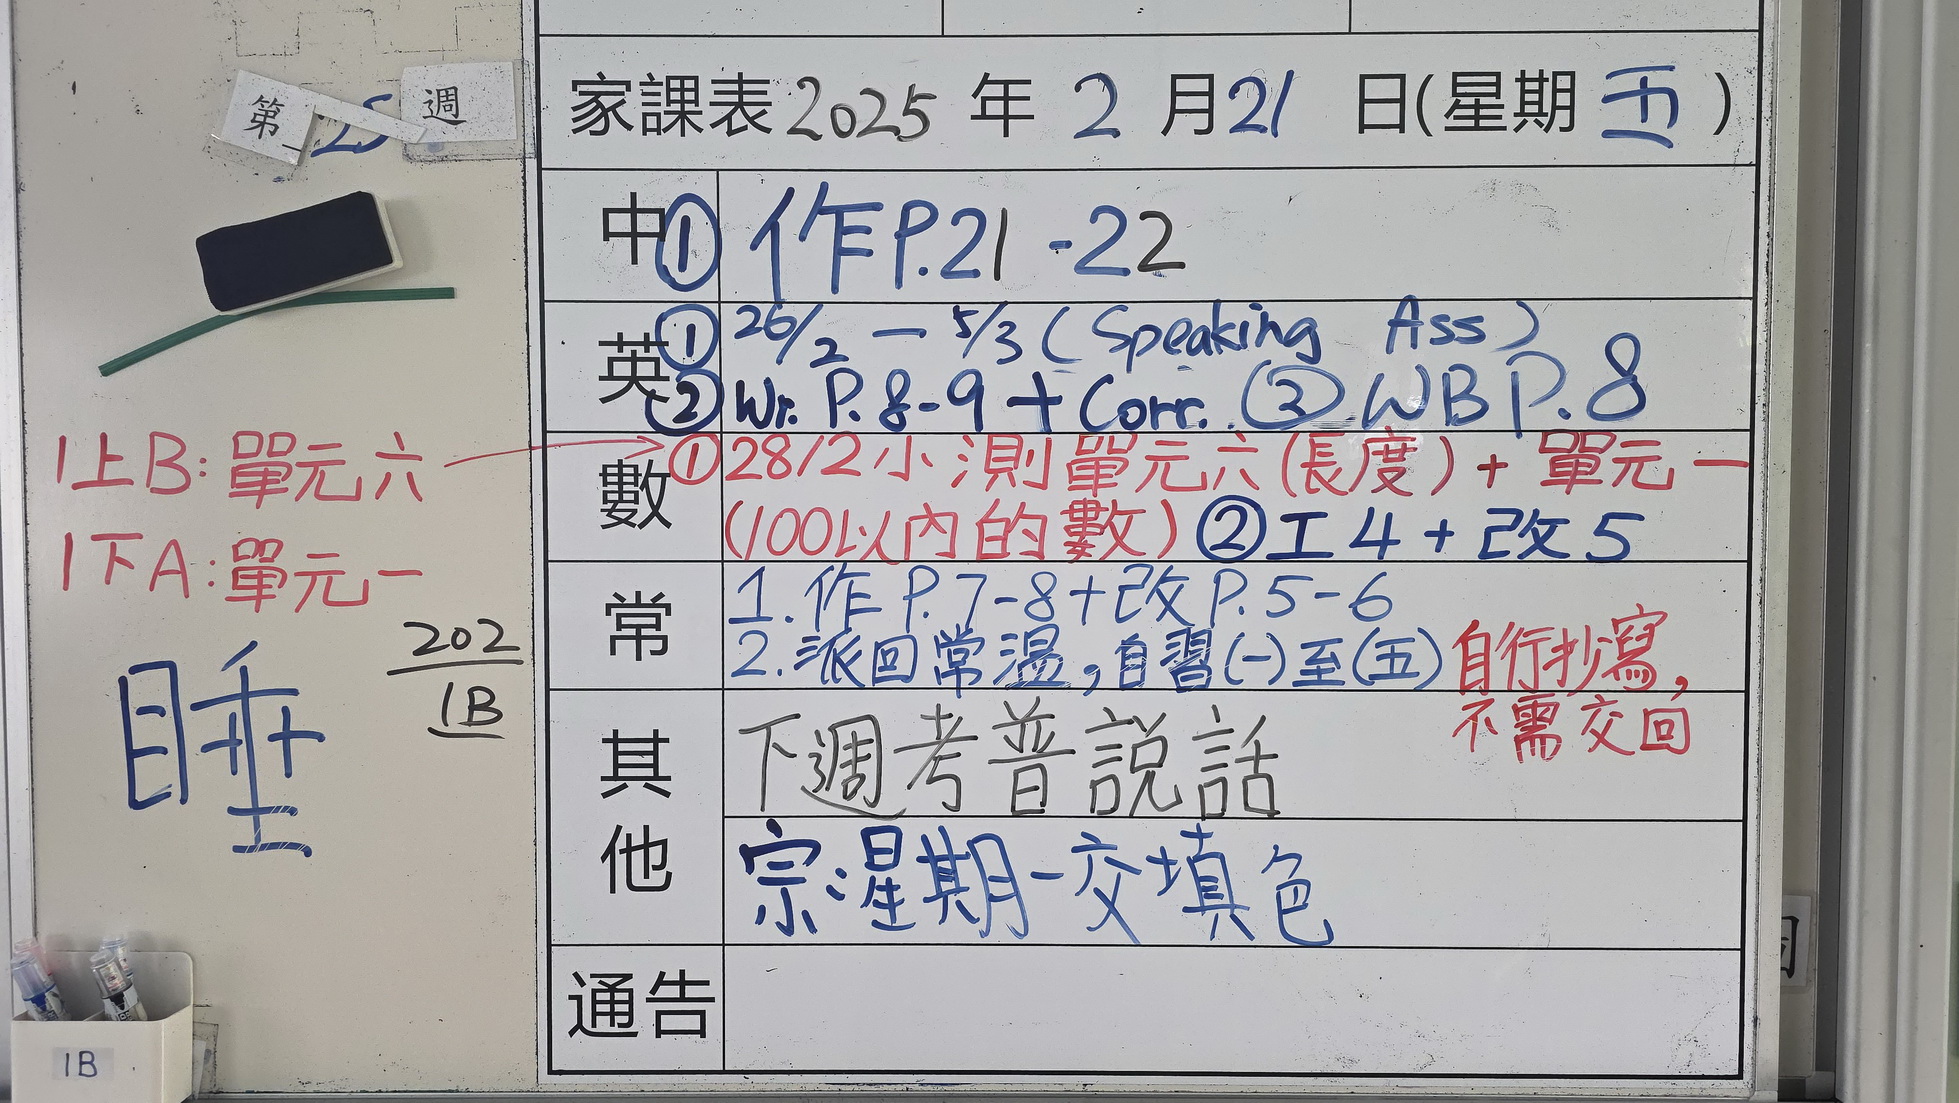 第 25 週
家課表 2025 年 2 月 21 日(星期 五)
中 ① 作 P.21-22
英 ① 26/2 — 5/3 (Speaking Ass)
② Wr. P.8-9 + Corr. ③ WB P.8
數 ① 28/2 小測單元六(長度) + 單元一
(100以內的數) ② 工 4 + 改 5
1上B:單元六
1下A:單元一
常 1. 作 P.7-8+改 P.5-6
2. 派回常溫,自習(一)至(五) 自行抄寫,
不需交回
其他 下週考普說話
宗:星期一交填色
通告
睡
202
1B
1B